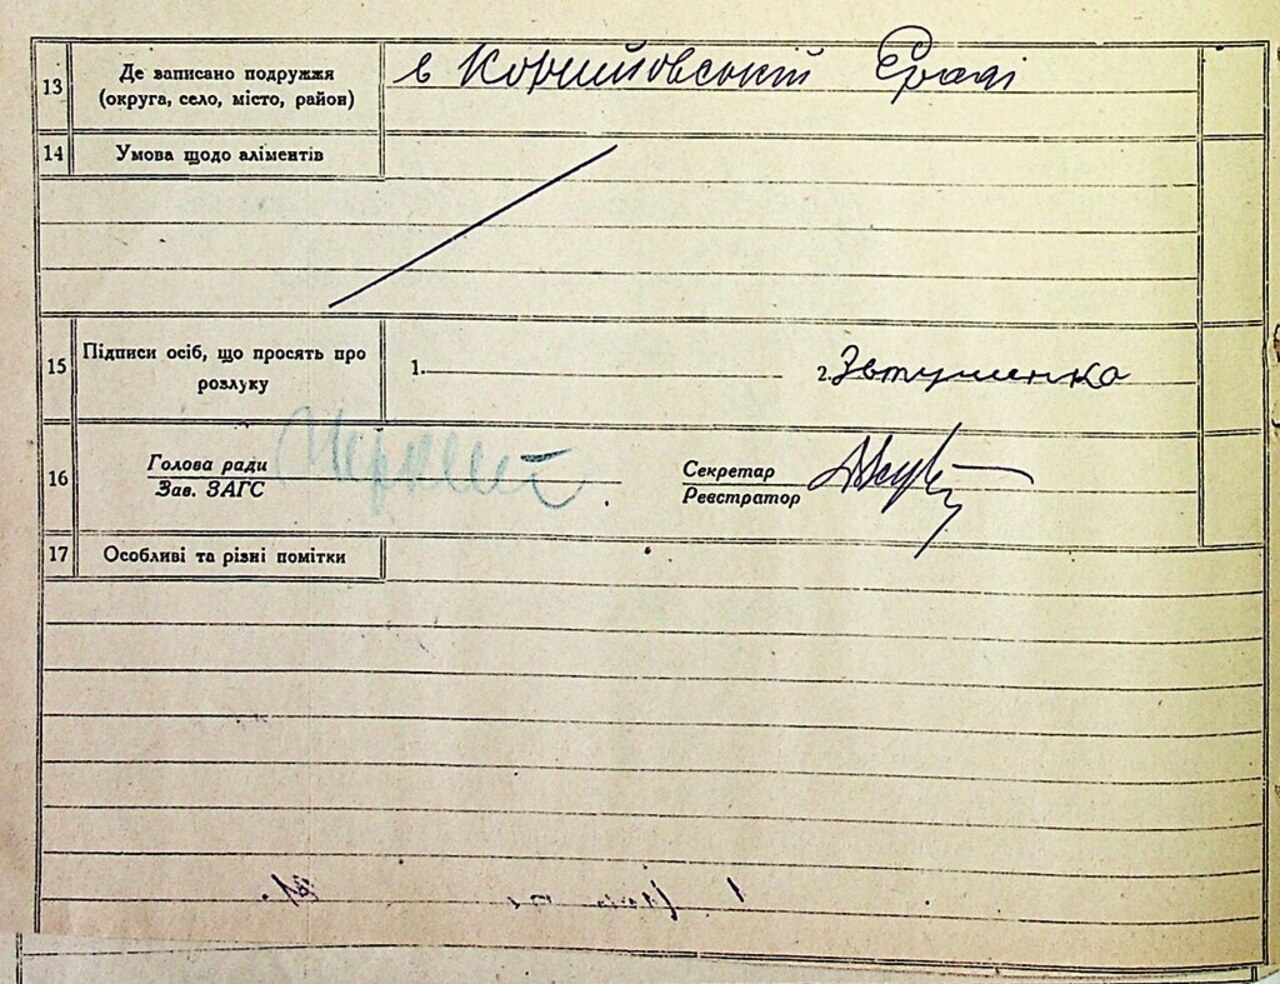 13 Де записано подружжя
(округа, село, місто, район)
в Корнийовській Сраді
14 Умова щодо аліментів
15 Підписи осіб, що просять про
розлуку
1. 2. Євтушенко
16 Голова ради
Зав. ЗАГС
Секретар
Реєстратор
17 Особливі та різні помітки